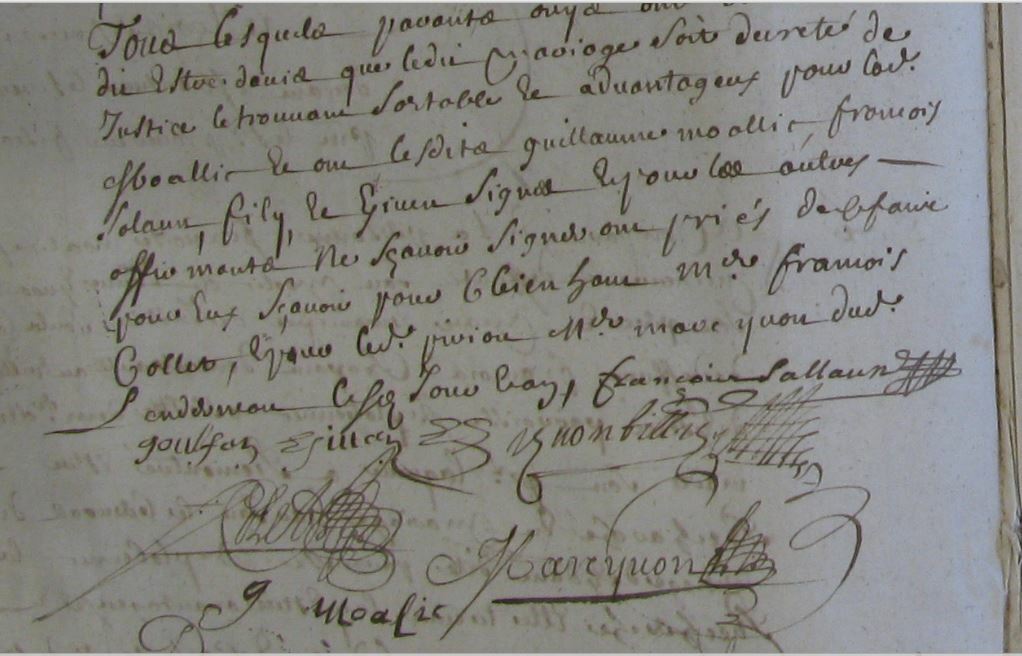 Tous lesquels parants ouys ont
dit Estre d'avis que ledit mariage soit decreté de
Justice le trouvant sortable Et advantageux pour lad.
Moallic Et ont lesdits guillaume moallic, francois
Solaun, fily, Et Givin signés Et pour les autres —
affirmants Ne sçavoir signer ont priés de le faire
pour Eux sçavoir pour Ghienhouv mre francois
Collet, Et pour led. mre marc yvon dud.
Lendemeau lesd. Jour Et an, francois Sallaun
goulfen yvon billi
Marc yvon
g Moalic